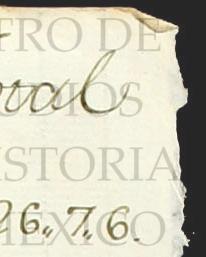 TRO DE
oral
UDIOS
ISTORIA
26,, 7,, 6.
MEXICO